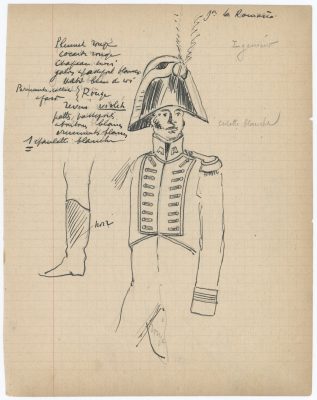 Plumet rouge
cocarde rouge
chapeau noir
galon passepoil blanc
habit bleu de roi
Parements, collet } Rouge
revers violet
pattes, passepoils
boutons blancs
ornements blancs
1 épaulette blanche
noir
Ingénieur
culotte blanche
de la Romaña